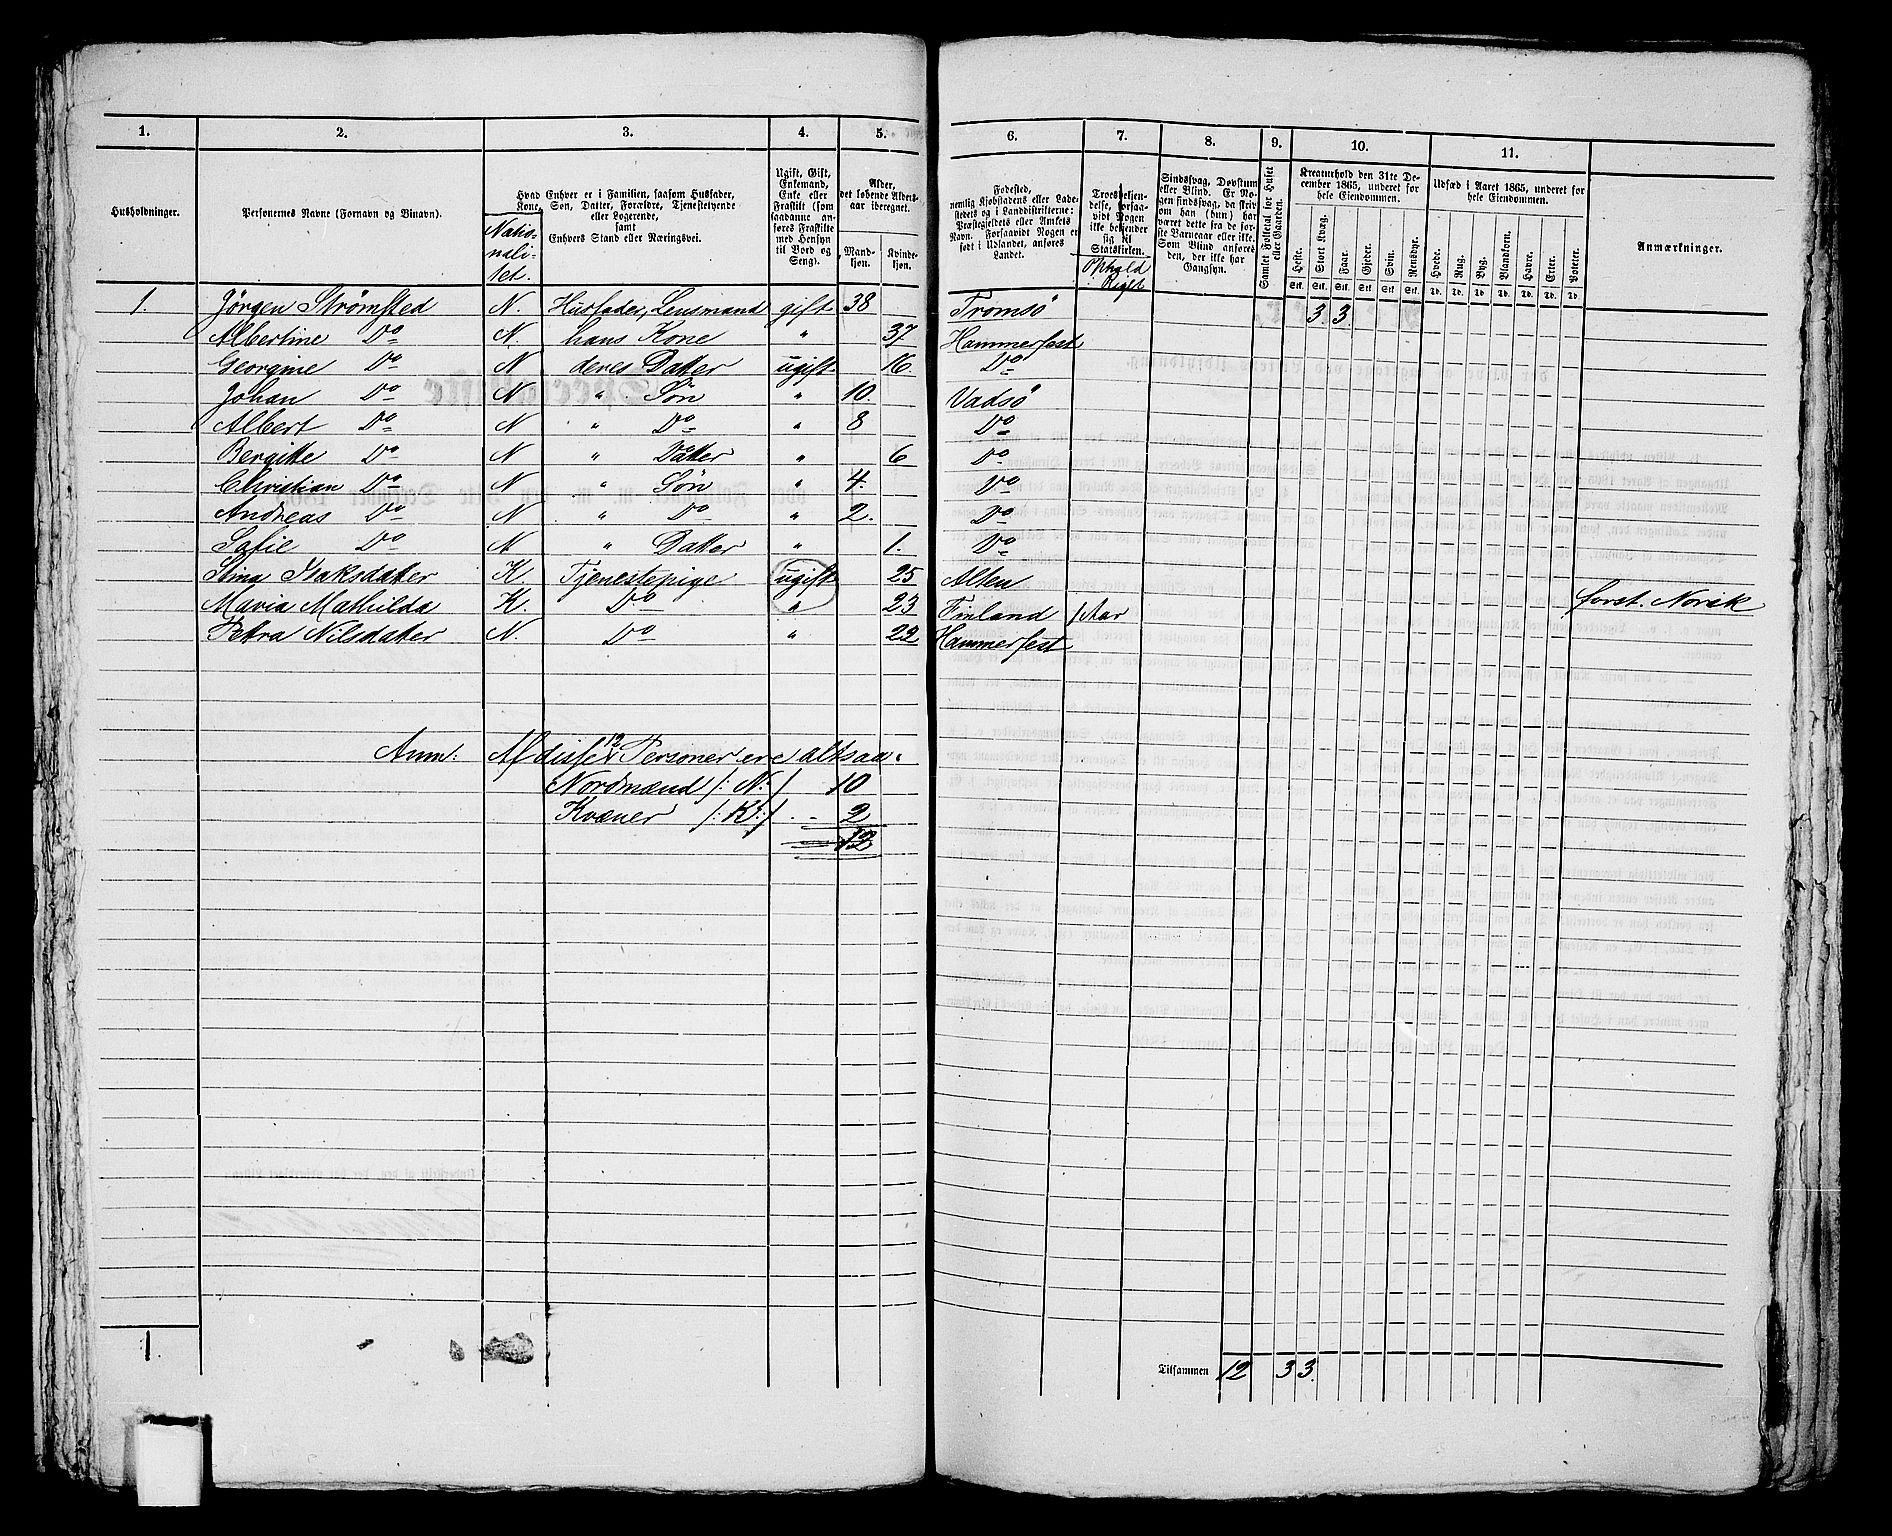 1. 2. 3. 4. 5. 6. 7. 8. 9. 10. 11.
Husholdninger.
Personernes Navne (Fornavn og Binavn).
Hvad Enhver er i Familien, saasom Husfader,
Kone, Søn, Datter, Forældre, Tjenestetyende
eller Logerende,
samt
Enhvers Stand eller Næringsvei.
Natio-
nali-
tet.
Ugift, Gift,
Enkemand,
Enke eller
Fraskilt (som
saadanne an-
føres Fraskilte
med Hensyn
til Bord og
Seng).
Alder,
det løbende Alders-
aar iberegnet.
Mand-
kjøn.
Kvinde-
kjøn.
Fødested,
nemlig Kjøbstadens eller Lade-
stedets og i Landdistrikterne:
Præstegjeldets eller Amtets
Navn. Forsaavidt Nogen er
født i Udlandet, anføres
Landet.
Troesbekjen-
delse, forsaa-
vidt Nogen
ikke bekjender
sig til
Statskirken.
Ophold
i Riget
Sindssvag, Døvstum
eller Blind. Er No-
gen sindssvag, da skriv
om han (hun) har
været dette fra de før-
ste Barneaar eller ikke.
Som Blind anfø­res
den, der ikke har
Gangsyn.
Samlet Folketal for Huset
eller Gaarden.
Kreaturhold den 31te De-
cember 1865, underet for
hele Eiendommen.
Heste. Stort Kvæg. Faar. Gjeder. Svin. Rensdyr.
Stk. Stk. Stk. Stk. Stk. Stk.
Udsæd i Aaret 1865, underet for
hele Eiendommen.
Hvede. Rug. Byg. Blandkorn. Havre. Erter. Poteter.
Td. Td. Td. Td. Td. Td. Td.
Anmærkninger.
1. Jørgen Strømsted N. Husfader, Lensmand gift 38 Tromsø 3. 3.
Albertine Do N. hans Kone " 37 Hammerfest
Georgine Do N deres Datter ugift 16 Do
Johan Do N " Søn " 10. Vadsø
Albert Do N " Do " 8 Do
Bergitte Do N " Datter " 6 Do
Christian Do N " Søn " 4. Do
Andreas Do N " Do " 2. Do
Sofie Do N " Datter " 1. Do
Stina Isaksdatter K. Tjenestepige ugift 25 Alten
Maria Mathilda K. Do " 23 Finland 1 Aar forst. Norsk
Petra Nilsdatter N. Do " 22 Hammerfest
Anm: Af disse 12 Personer ere altsaa:
Nordmænd /: N: / 10
Kvæner /: K: / . - 2
12
1
Tilsammen 12 3 3